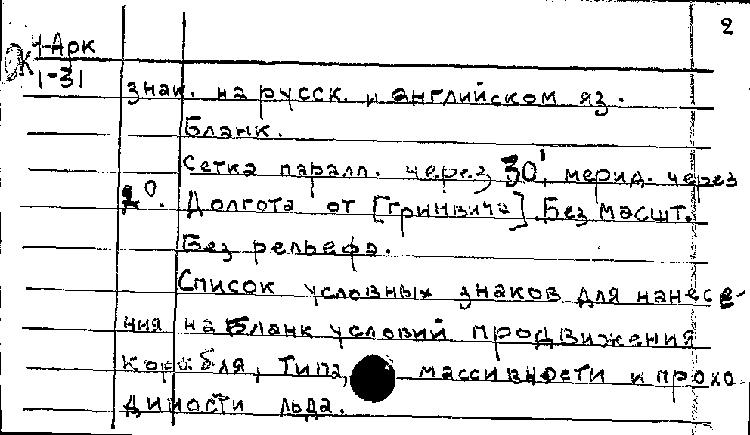 2
Ч-Арк
1-31
знак. на русск. и английском яз.
Бланк.
Сетка паралл. через 30', мерид. через
2°. Долгота от [Гринвича]. Без масшт.
Без рельефа.
Список условных знаков для нанесе-
ния на бланк условий продвижения
корабля, типа, массивности и прохо
димости льда.